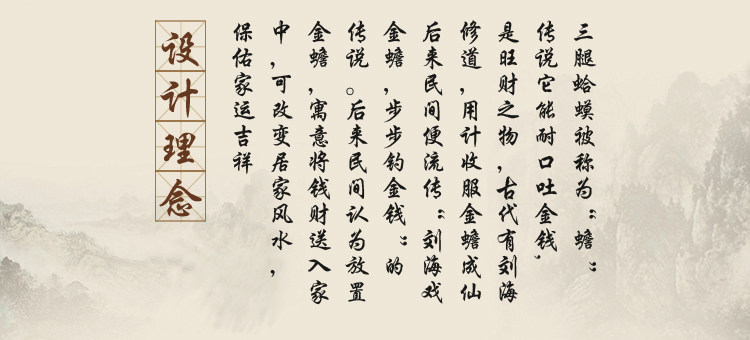 设计理念
三腿蛤蟆被称为“蟾”
传说它能耐口吐金钱，
是旺财之物，古代有刘海
修道，用计收服金蟾成仙
后来民间便流传“刘海戏
金蟾，步步钓金钱”的
传说。后来民间认为放置
金蟾，寓意将钱财送入家
中，可改变居家风水，
保佑家运吉祥